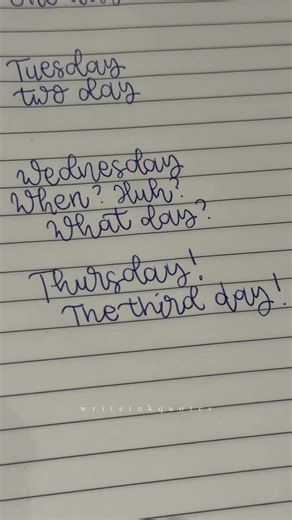 Tuesday
two day
Wednesday
When? Huh?
What day?
Thursday!
The third day!
writeinkquotes